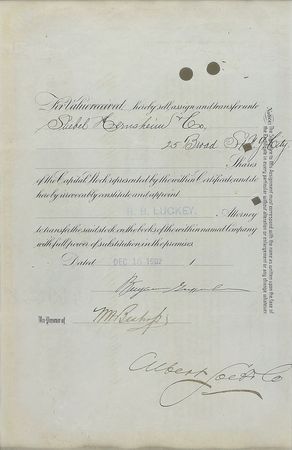 For Value received, hereby sell, assign and transfer unto
Co,
25 Broad St N.Y. City
Shares
of the Capital Stock represented by the within Certificate and do
hereby irrevocably constitute and appoint
B. B. LUCKEY, Attorney
to transfer the said stock on the books of the within named Company
with full power of substitution in the premises.
Dated DEC 16 1902 1
In Presence of
Wm Bishop
Albert & Co
Notice: The Signature to this Assignment must correspond with the name as written upon the face of
the Certificate in every particular without alteration or enlargement or any change whatever.